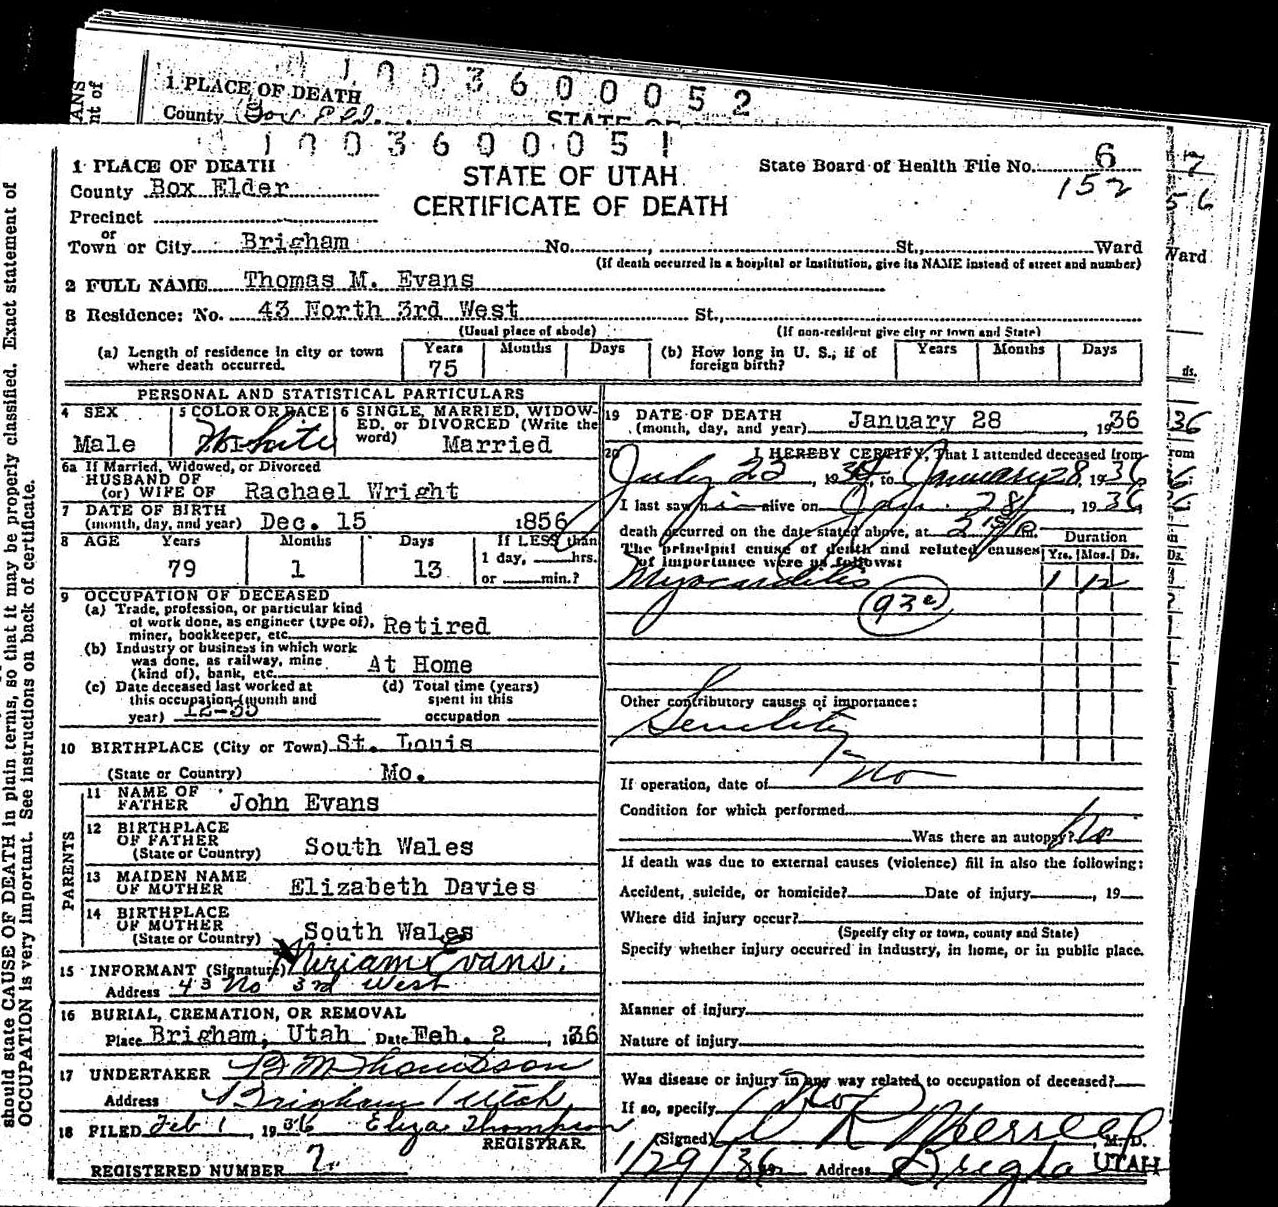 1 0 0 3 6 0 0 0 5 2
1 PLACE OF DEATH
County Box Eld
STATE OF
1 0 0 3 6 0 0 0 5 1
1 PLACE OF DEATH
County Box Elder
Precinct
or
Town or City Brigham No. , St., Ward
(If death occurred in a hospital or institution, give its NAME instead of street and number)
STATE OF UTAH
CERTIFICATE OF DEATH
State Board of Health File No. 6
152
2 FULL NAME Thomas M. Evans
3 Residence: No. 43 North 3rd West St.,
(Usual place of abode) (If non-resident give city or town and State)
(a) Length of residence in city or town where death occurred. Years 75 Months Days
(b) How long in U. S., if of foreign birth? Years Months Days
PERSONAL AND STATISTICAL PARTICULARS
4 SEX Male
5 COLOR OR RACE White
6 SINGLE, MARRIED, WIDOWED, or DIVORCED (Write the word) Married
6a If Married, Widowed, or Divorced
HUSBAND OF
(or) WIFE OF Rachael Wright
7 DATE OF BIRTH
(month, day, and year) Dec. 15 1856
8 AGE Years 79 Months 1 Days 13 If LESS than 1 day, hrs. or min.?
9 OCCUPATION OF DECEASED
(a) Trade, profession, or particular kind of work done, as engineer (type of), miner, bookkeeper, etc. Retired
(b) Industry or business in which work was done, as railway, mine (kind of), bank, etc. At Home
(c) Date deceased last worked at this occupation (month and year) 12-35
(d) Total time (years) spent in this occupation
10 BIRTHPLACE (City or Town) St. Louis
(State or Country) Mo.
PARENTS
11 NAME OF FATHER John Evans
12 BIRTHPLACE OF FATHER
(State or Country) South Wales
13 MAIDEN NAME OF MOTHER Elizabeth Davies
14 BIRTHPLACE OF MOTHER
(State or Country) South Wales
15 INFORMANT (Signature) Miriam Evans.
Address 43 No 3rd West
16 BURIAL, CREMATION, OR REMOVAL
Place Brigham, Utah Date Feb. 2 , 1936
17 UNDERTAKER Thompson
Address Brigham Utah
18 FILED Feb 1 , 1936 Eliza Thompson
REGISTRAR.
REGISTERED NUMBER 7
19 DATE OF DEATH
(month, day, and year) January 28 , 1936
20 I HEREBY CERTIFY, That I attended deceased from
July 22 , 19 , to January 28, 1936
I last saw him alive on Jan. 28, 1936,
death occurred on the date stated above, at
The principal cause of death and related causes of importance were as follows:
Duration
Yrs. Mos. Ds.
Myocarditis 1 12
93c
Other contributory causes of importance:
Senility
no
If operation, date of
Condition for which performed
Was there an autopsy? No
If death was due to external causes (violence) fill in also the following:
Accident, suicide, or homicide? Date of injury , 19
Where did injury occur?
(Specify city or town, county and State)
Specify whether injury occurred in industry, in home, or in public place.
Manner of injury
Nature of injury
Was disease or injury in any way related to occupation of deceased?
No
If so, specify
(Signed) M. D.
1/29/36 Address UTAH
should state CAUSE OF DEATH in plain terms, so that it may be properly classified. Exact statement of
OCCUPATION is very important. See instructions on back of certificate.
7
56
Ward
ds.
36